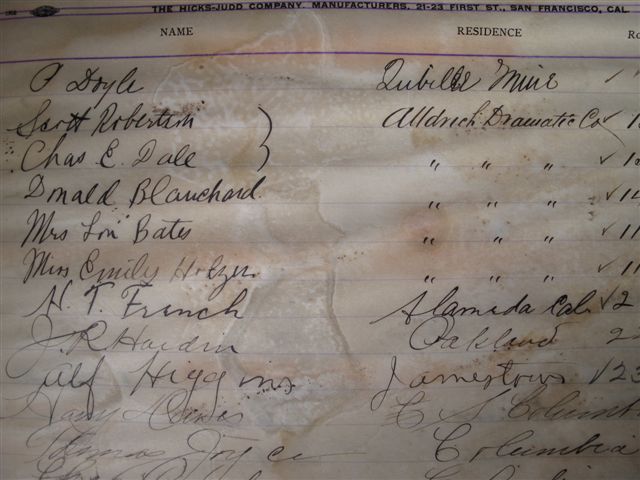 THE HICKS-JUDD COMPANY, MANUFACTURERS, 21-23 FIRST ST., SAN FRANCISCO, CAL
NAME RESIDENCE Ro
P Doyle Mine
Scott Robertson Alldrich Dramatic Co ✓
Chas E. Dale " " " ✓
Donald Blanchard " " " ✓
Mrs Lou Bates " " " ✓
Miss Emily Holzer " " " ✓
H. T. French Alameda Cal ✓2
J. R. Hardin Oakland
Alf Higgins Jamestown ✓23
Harry U S Columb
Thomas Joyce Columbia